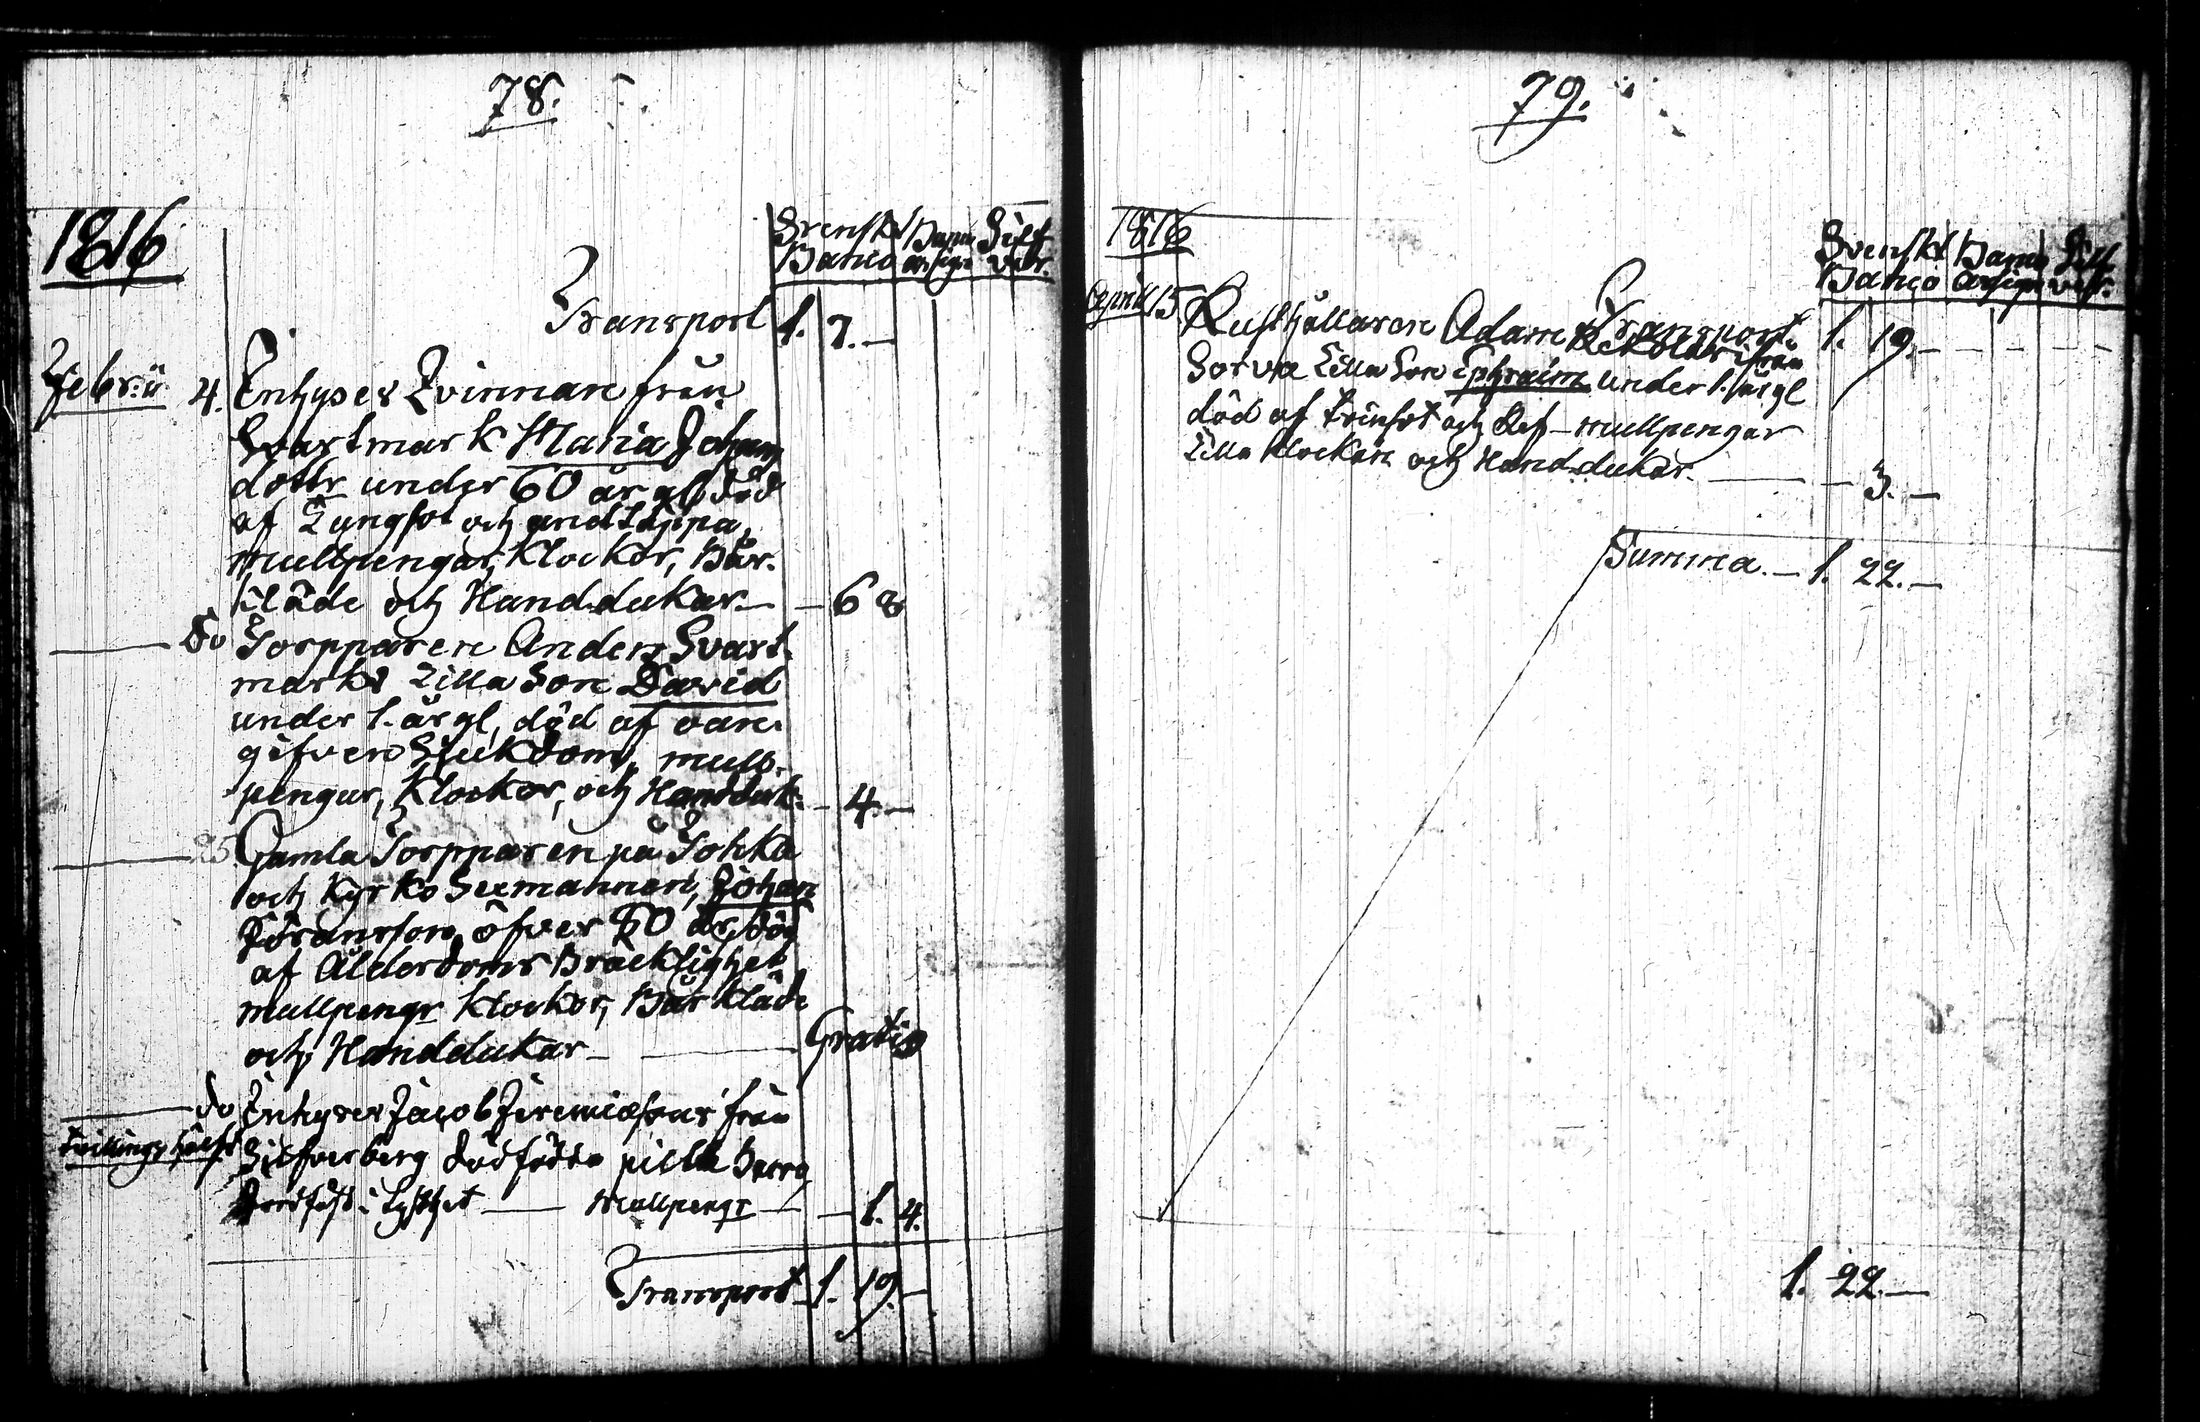 78.
1816
Svensk Banco Silf
Banco assign ver.
Transport 1. 7.—
Februū 4. Inhyses Qvinnan från
Svartmark Maria Johans
dottr under 60 år gl. död
af Lungsot och andtäppa,
mullpengar, Klockor, Bår-
kläde och Handdukar — — 6 8
— do Torpparen Anders Svart-
marks lilla Son David
under 1. år gl, död af oan-
gifven Sjukdom, mull-
pengar, Klockor, och Handduk: — 4. —
— 25 Gamla Torpparen på
och Kyrko Sexmannen, Johan
Göransson, öfver 80 år, död
af Ålderdoms Bräcklighet
mullpengr Klockor, Bår kläde
och Handdukar — — Gratis
— do Inhyses Jacob Jeremiæsons från
Silfverberg dödfödda
— Mullpengr — — 1. 4.
Transport 1. 19. —
79.
1816
Svenskt Banco Silf
Banco assign ver.
Transport 1. 19. — — — —
April 15 Rusthållaren Adam från
Sorva lilla Son Ephraim under 1. år gl
död af och Ref — mullpengar
lilla Klockan och Handdukar. — — 3. —
Summa. — 1. 22. —
1. 22. —